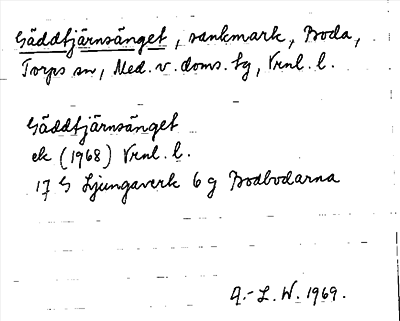 Gäddtjärnsänget, sankmark, Boda,
Torps sn, Med. v. doms. tg, Vrnl. l.
Gäddtjärnsänget
ek (1968) Vrnl. l.
17 G Ljungaverk 6 g Bodbodarna
A.-L. W. 1969.